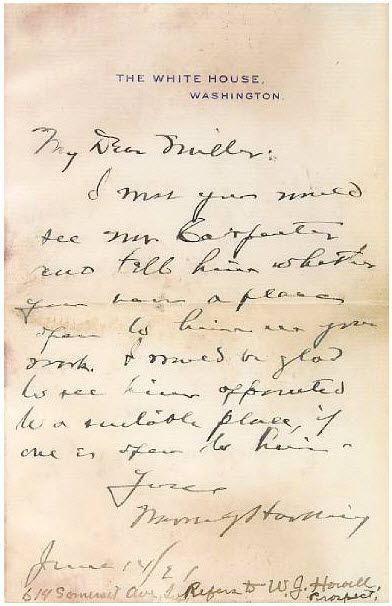 THE WHITE HOUSE,
WASHINGTON.
My Dear Miller:
I wish you would
see Mr Carpenter
and tell him whether
you have a place
open to him in your
work. I would be glad
to see him appointed
to a suitable place, if
one is open to him.
Yours
Warren G Harding
June 14/21
614 Somerset Ave, Refers to W. J. Howell,
Prospect.